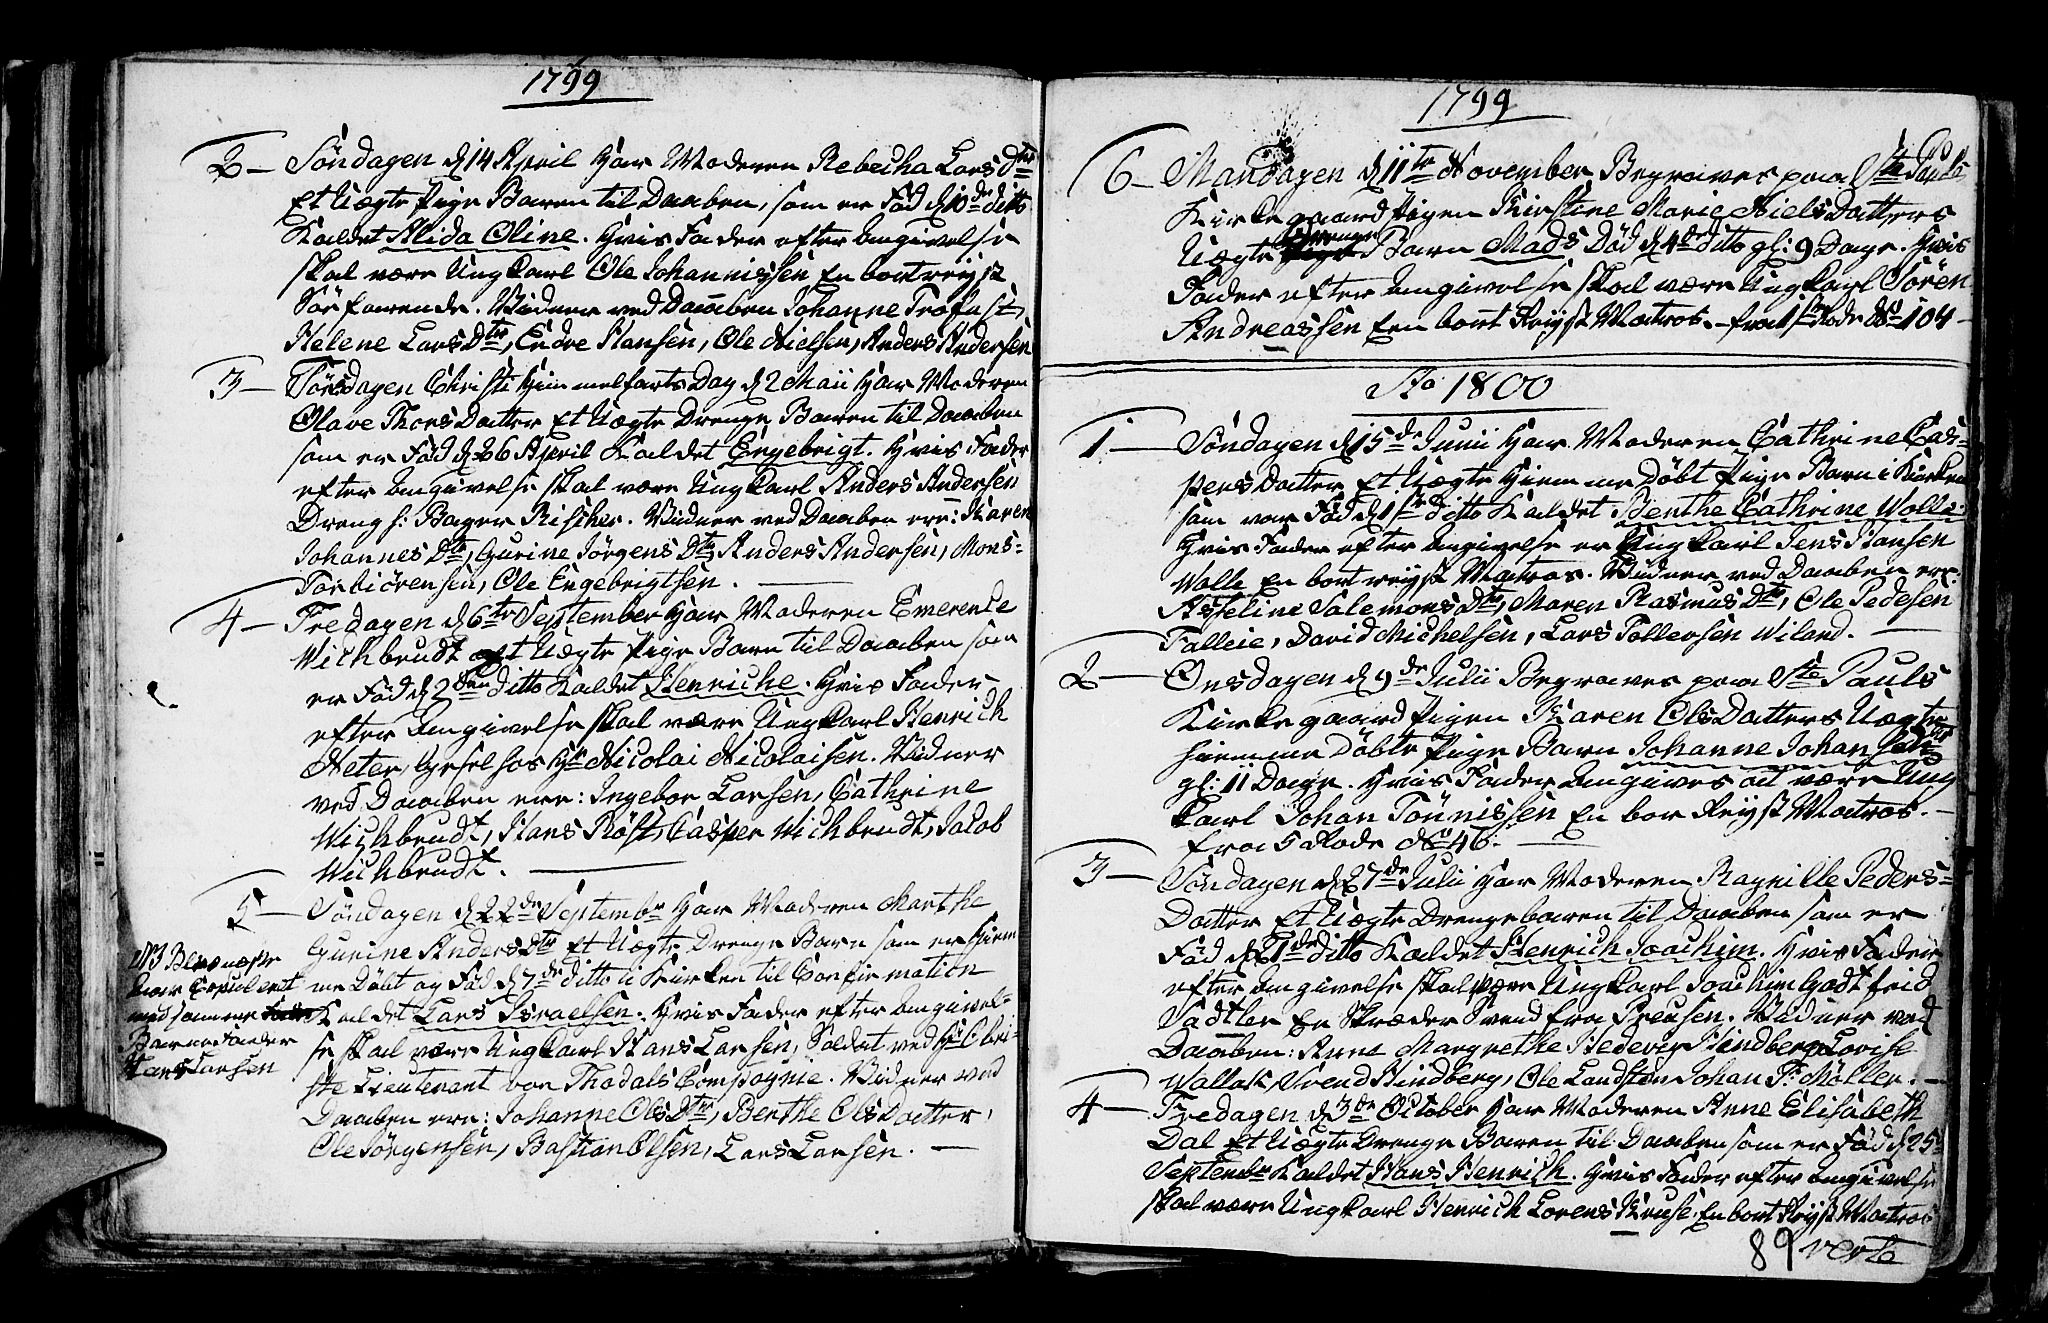 1799
2 – Söndagen d 14 April Har Moderen Rebecha Lars Dtr
Et Uægte Pige Baren til Daaben, som er Föd d 10de ditto
Kaldet Alida Oline. Hvis Fader efter Angivelse
skal være Ungkarl Ole Johannissen En bortreyst
Söefarende. Vidner ved Daaben Johanne Trofast,
Helene Lars Dtr, Endre Hansen, Ole Nielsen, Anders Andersen
3 – Torsdagen Christi Himmelfarts Dag d 2 Maii Har Moderen
Olave Thors Datter Et Uægte Drenge Baren til Daaben
som er Föd d 26 April Kaldet Engebrigt. Hvis Fader
efter Angivelse skal være Ungkarl Anders Andersen
Dreng h: Bager Rischer. Vidner ved Daaben ere: Karen
Johannes Dtr, Gurine Jörgens Dtr, Anders Andersen, Mons
Torbiörensen, Ole Engebrigtsen.
4 – Fredagen d 6te September Har Moderen Emerence
Wichbrudt et Uægte Pige Barn til Daaben som
er Föd d 2den ditto Kaldet Henriche. Hvis Fader
efter Angivelse skal være Ungkarl Henrich
Neter, Gesel hos Hr Nicolai Nicolaisen. Vidner
ved Daaben ere: Ingebor Larsen, Cathrine
Wichbrudt, Hans Röst, Casper Wichbrudt, Jacob
Wichbrudt.
5 – Söndagen d 22de Septembr Har Moderen Marthe
Gurine Anders Dtr Et Uægte Drenge Barn som er Hiem
me Döbt og Föd d 7de ditto i Kirken til Confirmation
Kaldet Lars Israelsen. Hvis Fader efter Angivel-
se skal være Ungkarl Hans Larsen, Soldat ved Hr Obri-
ste Lieutenant von Thodals Compagnie. Vidner ved
Daaben ere: Johanne Ols Dtr, Berthe Ols Datter,
Ole Jörgensen, Bastian Olsen, Lars Larsen.
NB
har Copuleret
med samme
Barne Fader
Hans Larsen
1799
6 – Mandagen d 11te November Begraves paa Ste Pauls
Kirkegaard Pigen Kirstine Marie Niels Datters
Uægte Drenge Barn Mads Död d 4de ditto gl: 9 Dage. Hvis
Fader efter Angivelse skal være Ungkarl Sören
Andreassen Een bort Reyst Matros. – fra 1ste Rode No 104
Ao 1800
1 – Söndagen d 15de Junii Har Moderen Cathrine Cas-
pers Datter Et Uægte Hiemme Döbt Pige Barn i Kirken
som var Föd d 1ste ditto Kaldet Benthe Cathrine Wolle.
Hvis Fader efter Angivelse er Ungkarl Jens Hansen
Wolle En bortreyst Matros. Vidner ved Daaben ere:
Asseline Salemons Dtr, Maren Rasmus Dtr, Ole Pedesen
Falleie, David Michelsen, Lars Tollevsen Wiland.
2 – Onsdagen d 9de Julii Begraves paa Ste Pauls
Kirkegaard Pigen Karen Ols Datters Uægte
hiemme Döbte Pige Barn Johanne Johans Dtr
gl: 11 Dage. Hvis Fader Angives at være Ung
Karl Johan Tönnissen En bor Reyst Matros.
fra 5 Rode No 46.
3 – Söndagen d 27de Julii Har Moderen Ragnille Peders-
Datter Et Uægte Drengebaren til Daaben som er
Föd d 21de ditto Kaldet Henrich Joachim. Hvis Fader
efter Angivelse skal være Ungkarl Joachim Godtfrid
Sadtler En Skræder Svend fra Preusen. Vidner ved
Daaben: Anne Margrethe Hedevig Hindberg, Lovise
Wallak, Svend Hindberg, Ole Landsten, Johan Fr. Möller.
4 – Fredagen d 3de October Har Moderen Anne Elisabeth
Dal Et Uægte Drenge Baren til Daaben som er Föd d 25
Septembr Kaldet Hans Henrich. Hvis Fader efter Angivelse
skal være Ungkarl Henrich Lorens Kruse, En bort Reyst Matros
89 verte